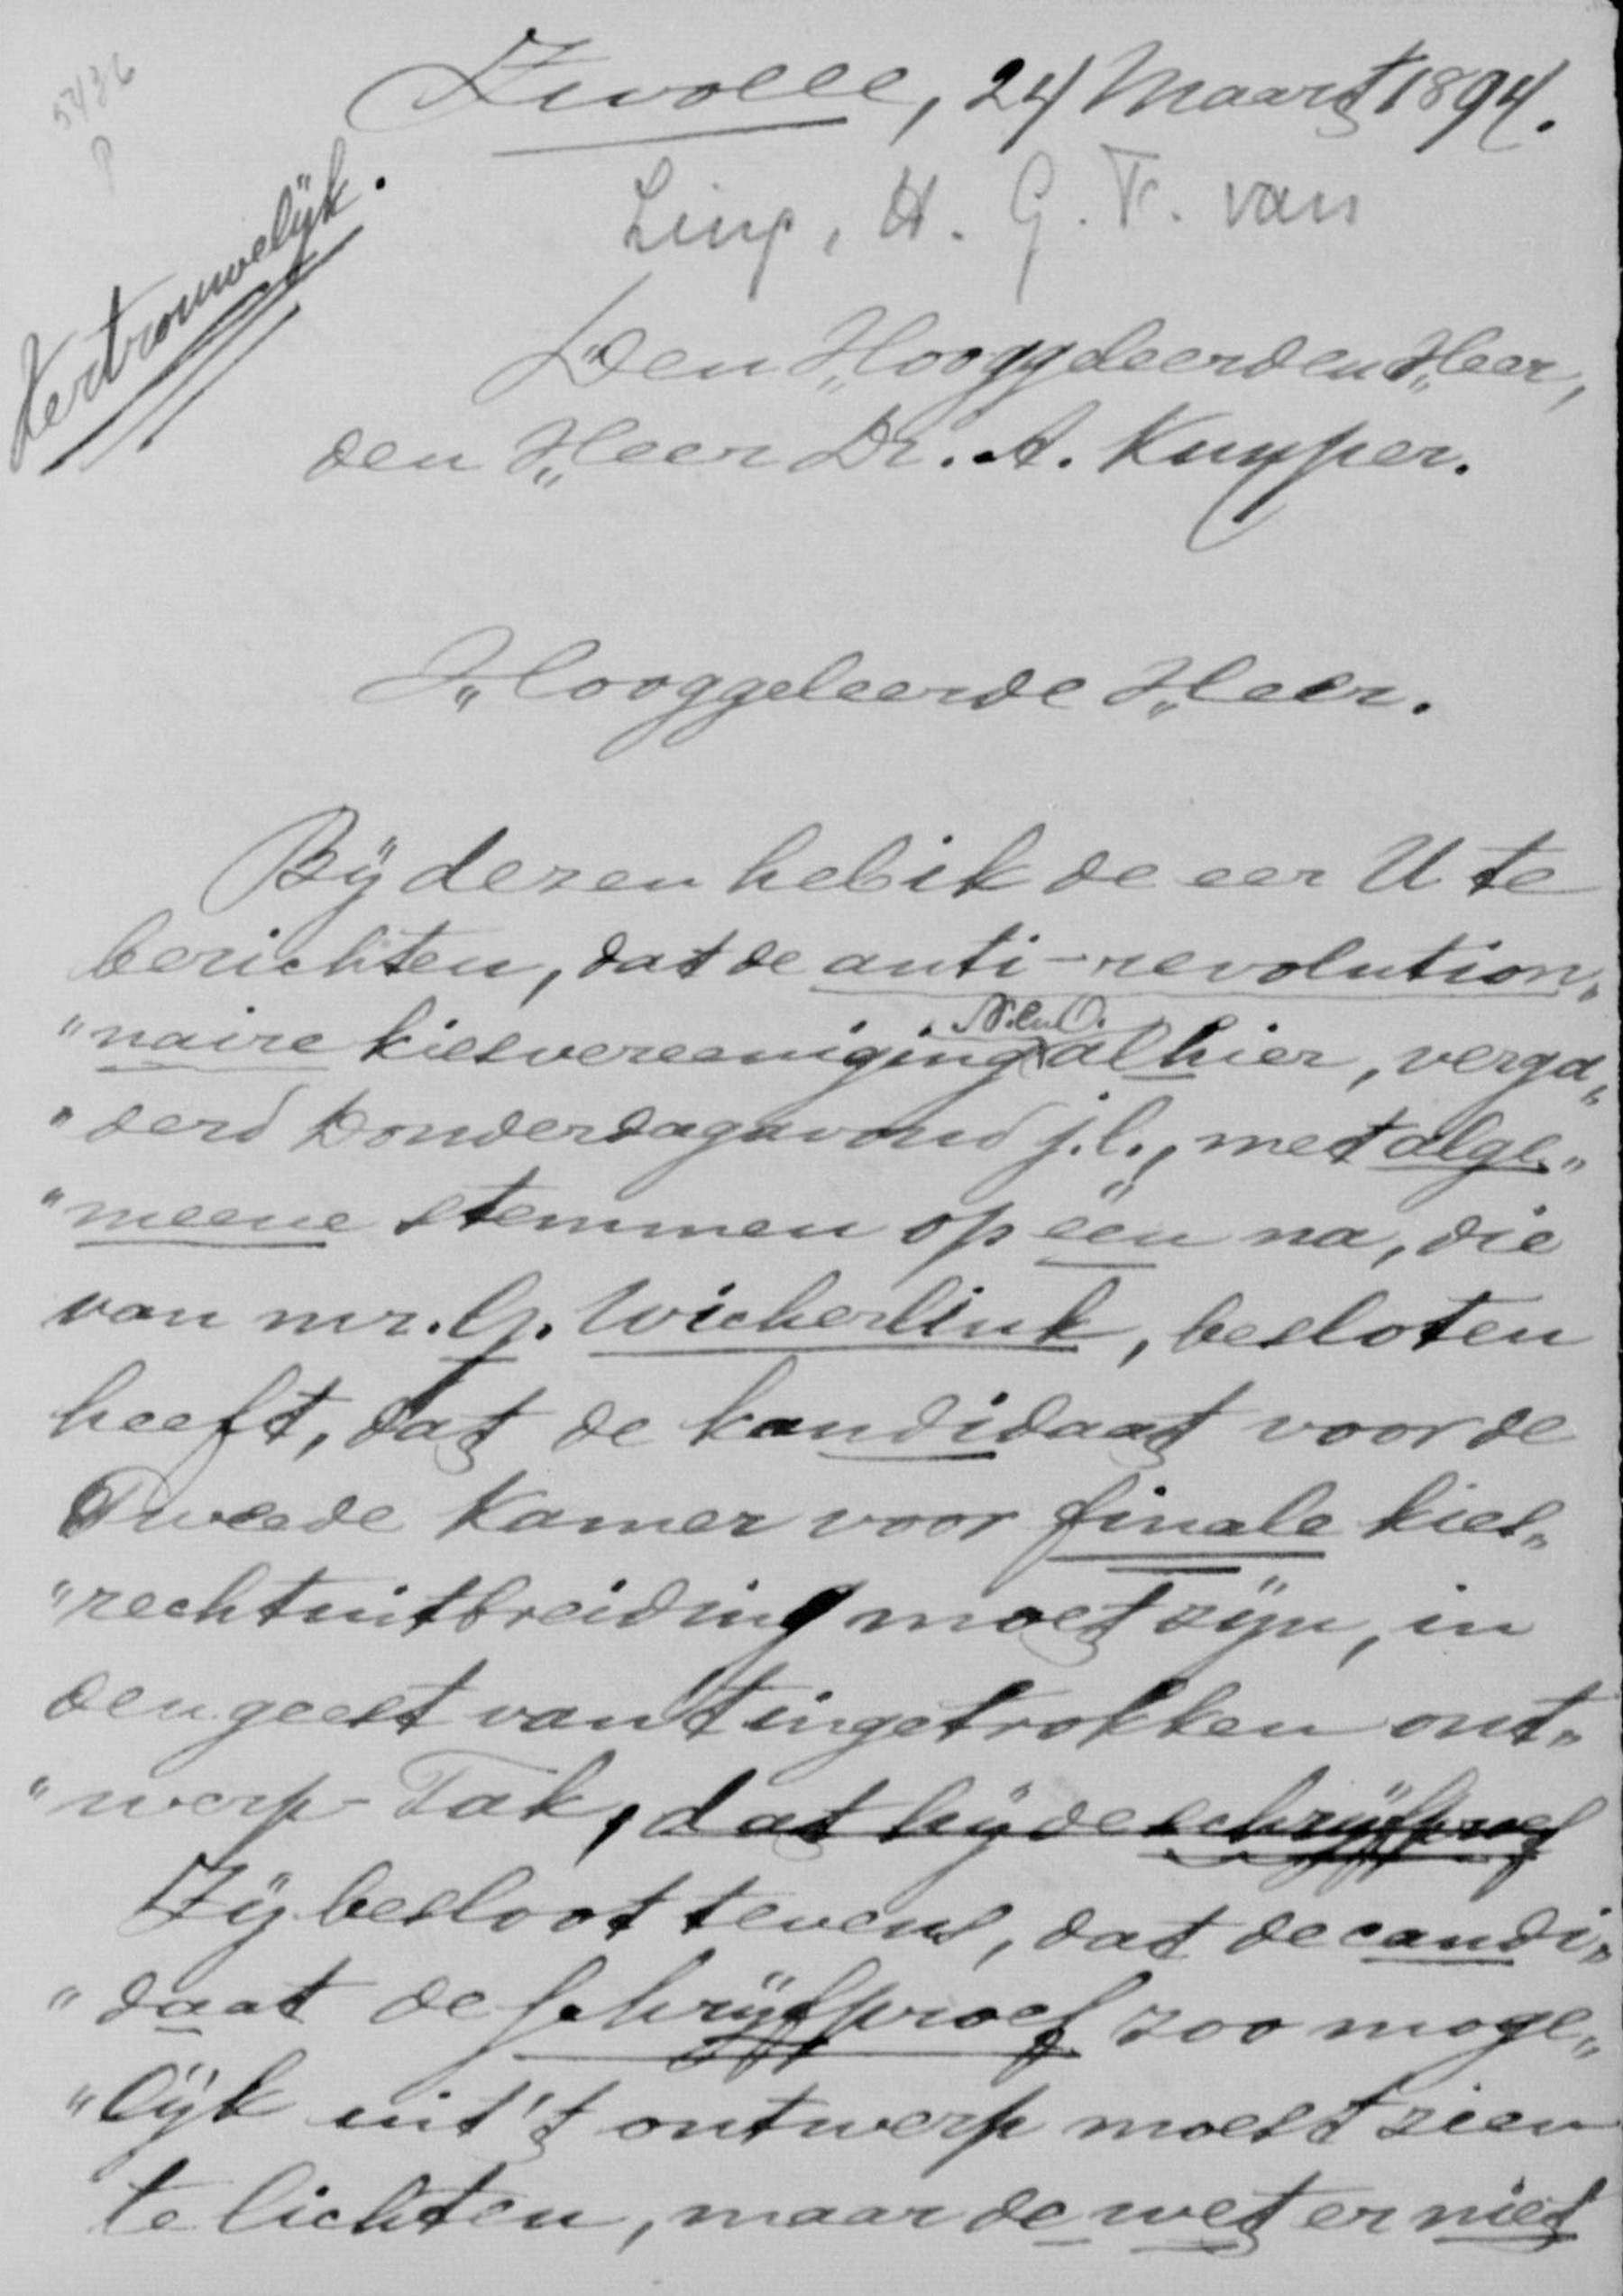 5436
P
Zwolle, 24 Maart 1894.
Linp, H. G. F. van
Vertrouwelijk.
Den Hooggeleerden Heer,
den Heer Dr. A. Kuyper.
Hooggeleerde Heer.
Bij dezen heb ik de eer U te
berichten, dat de anti-revolution„
"naire kiesvereeniging N. en O. alhier, verga„
"derd Donderdagavond j.l., met alge„
"meene stemmen op één na, die
van mr. G. Wicherlink, besloten
heeft, dat de kandidaat voor de
Tweede Kamer voor finale kies„
"rechtuitbreiding moet zijn, in
den geest van 't ingetrokken ont„
"werp-Tak, dat hij de schrijfproef
Zij besloot tevens, dat de candi„
"daat de schrijfproef zoo moge„
"lijk uit 't ontwerp moest zien
te lichten, maar de wet er niet